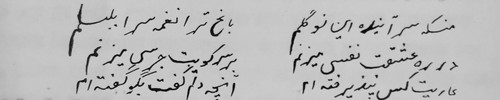 منکه سر آینده این نو گلم باغ ترا نغمه سرا بلبلم
در ره عشقت نفسی میزنم بر سر کویت جرسی میزنم
عاریت کس نپذیرفته ام آنچه دلم گفت بگو گفته ام